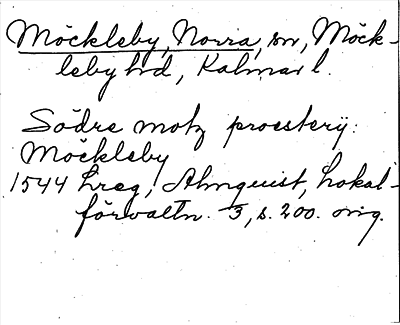 Möckleby, Norra, sn, Möck-
leby hd, Kalmar l.
Södre motz proesterij:
Möckleby
1544 hreg, Almquist, Lokal-
förvaltn. 3, s. 200. orig.